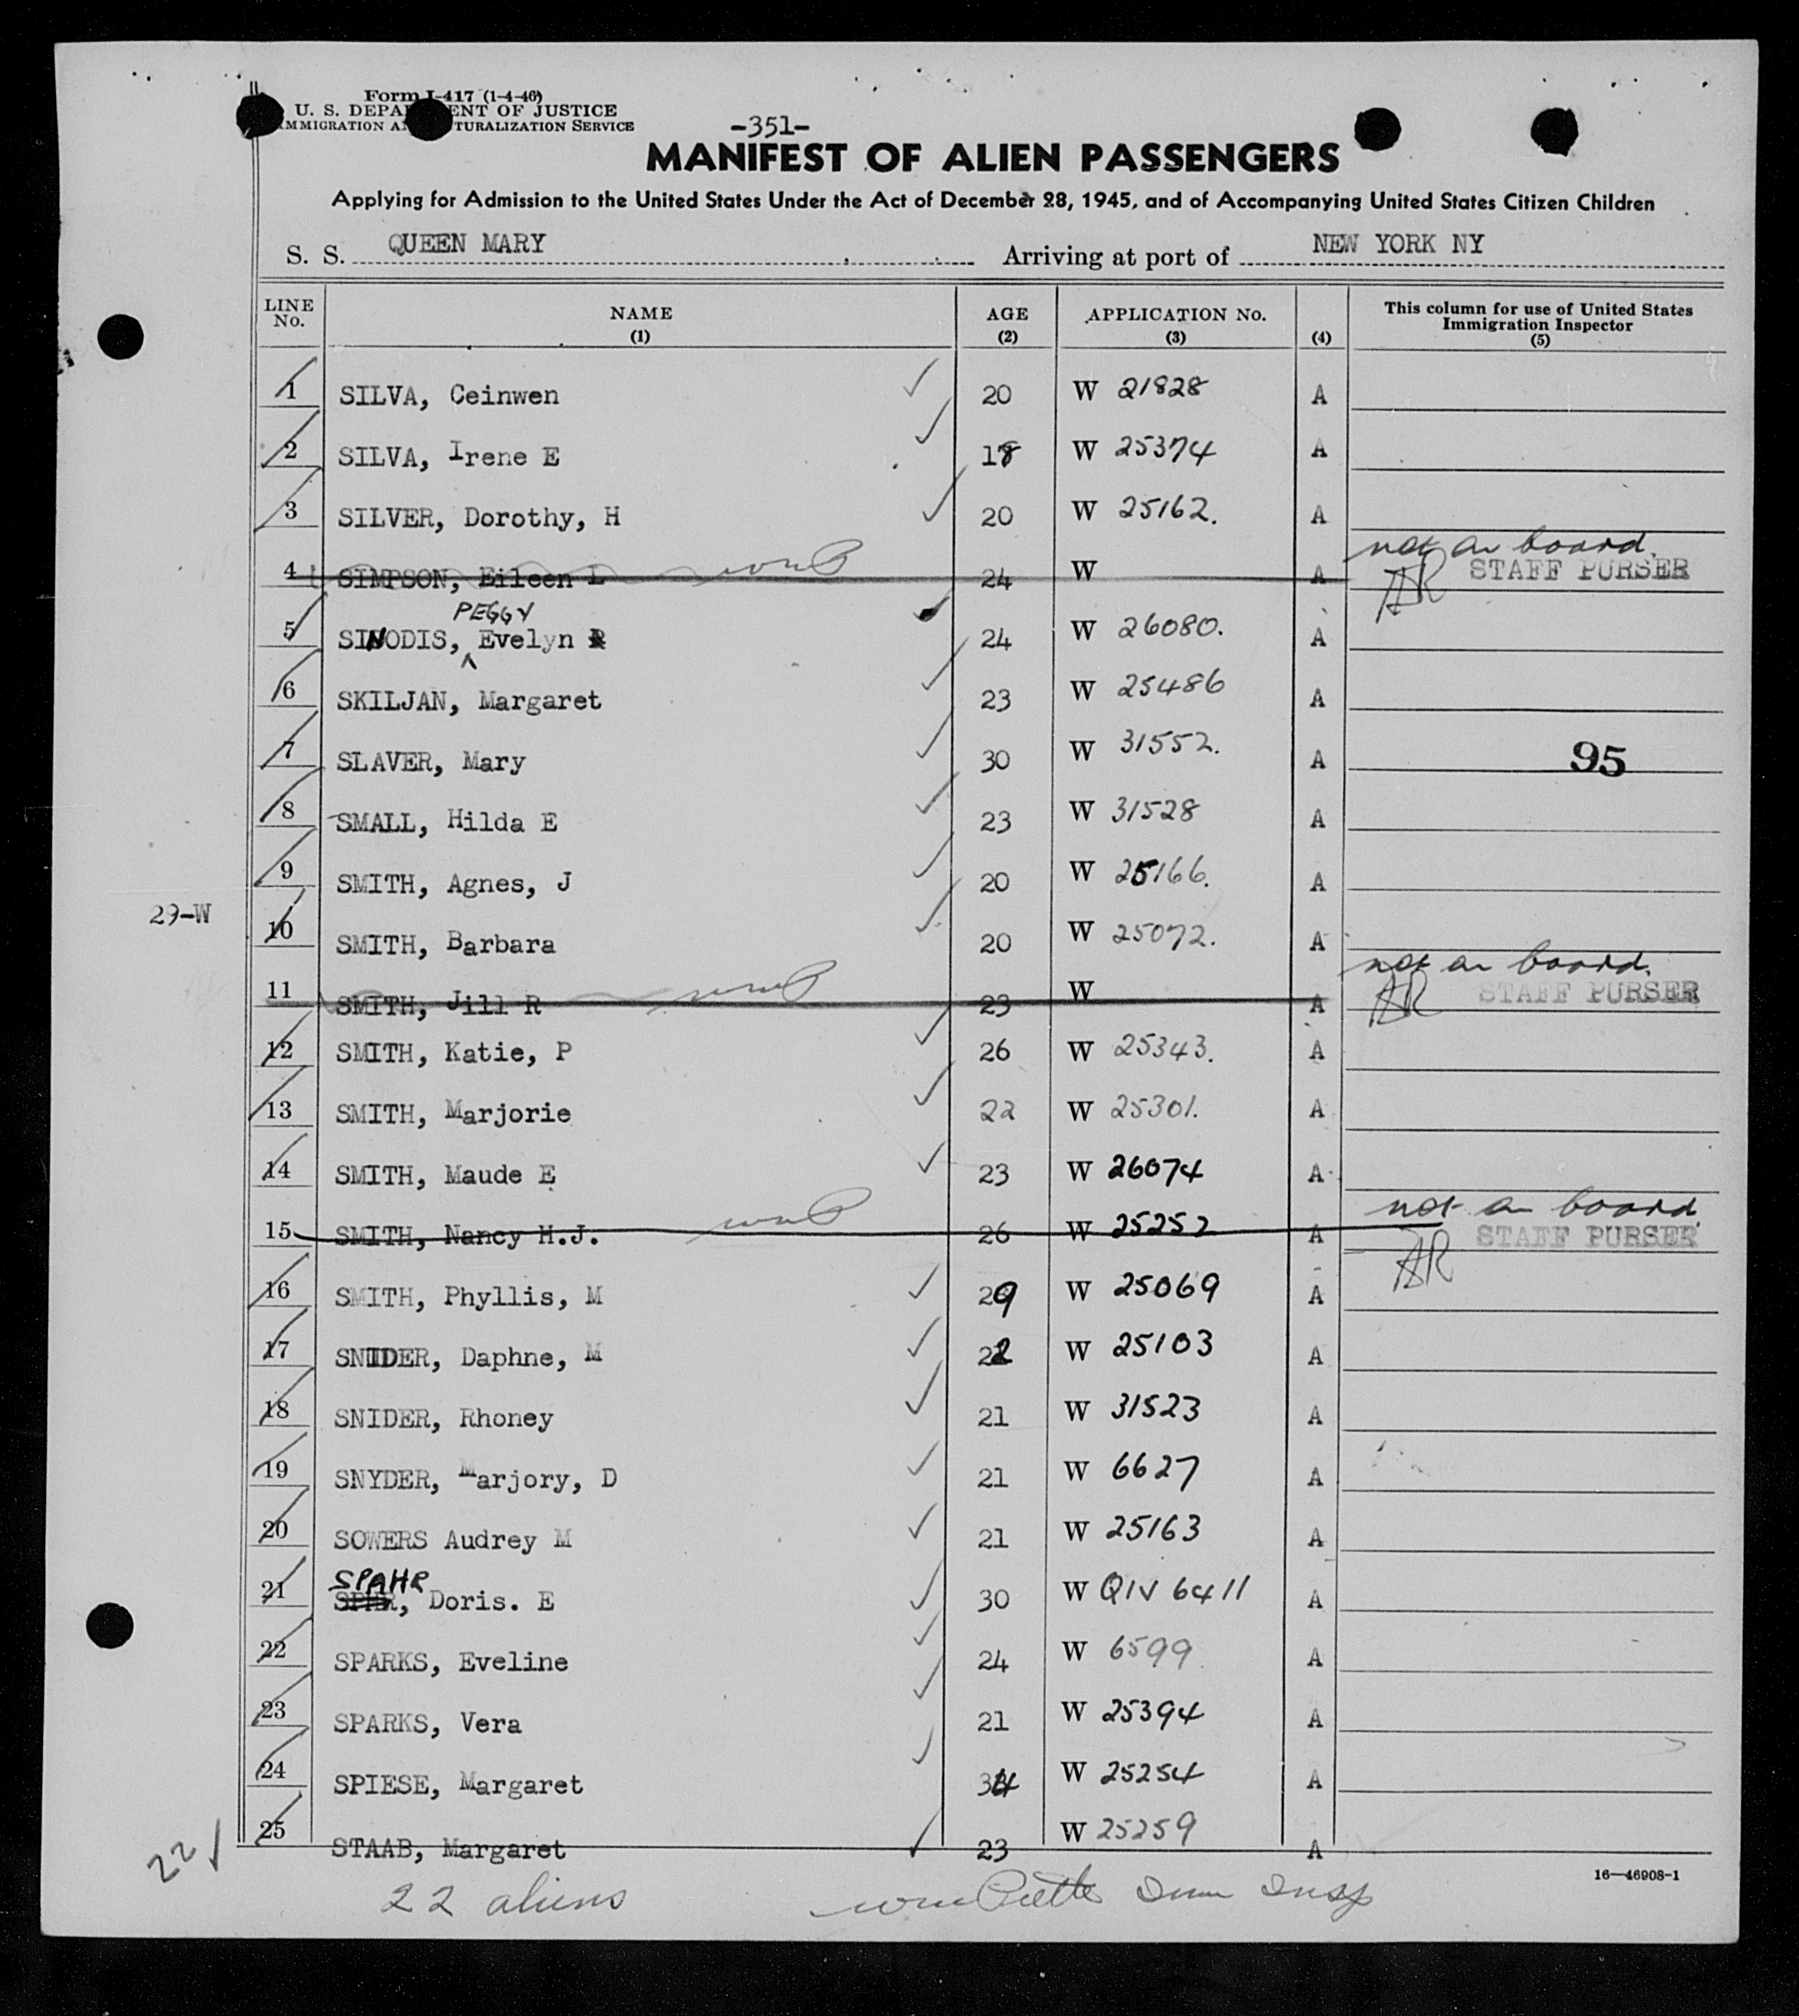 Form I-417 (1-4-46)
U. S. DEPARTMENT OF JUSTICE
IMMIGRATION AND NATURALIZATION SERVICE
-351-
MANIFEST OF ALIEN PASSENGERS
Applying for Admission to the United States Under the Act of December 28, 1945, and of Accompanying United States Citizen Children
S. S. QUEEN MARY Arriving at port of NEW YORK NY
LINE No. NAME (1) AGE (2) APPLICATION No. (3) (4) This column for use of United States Immigration Inspector (5)
1 SILVA, Ceinwen 20 W 21828 A
2 SILVA, Irene E 18 W 25374 A
3 SILVER, Dorothy, H 20 W 25162. A
not on board.
4 SIMPSON, Eileen L 24 W A AR STAFF PURSER
PEGGY
5 SINODIS, Evelyn R 24 W 26080. A
6 SKILJAN, Margaret 23 W 25486 A
7 SLAVER, Mary 30 W 31552. A 95
8 SMALL, Hilda E 23 W 31528 A
9 SMITH, Agnes, J 20 W 25166. A
29-W
10 SMITH, Barbara 20 W 25072. A
not on board.
11 SMITH, Jill R 23 W A AR STAFF PURSER
12 SMITH, Katie, P 26 W 25343. A
13 SMITH, Marjorie 22 W 25301. A
14 SMITH, Maude E 23 W 26074 A
not on board
15 SMITH, Nancy H.J. 26 W 25252 A AR STAFF PURSER
16 SMITH, Phyllis, M 29 W 25069 A
17 SNIDER, Daphne, M 22 W 25103 A
18 SNIDER, Rhoney 21 W 31523 A
19 SNYDER, Marjory, D 21 W 6627 A
20 SOWERS Audrey M 21 W 25163 A
SPAHR
21 Doris. E 30 W QIV 6411 A
22 SPARKS, Eveline 24 W 6599 A
23 SPARKS, Vera 21 W 25394 A
24 SPIESE, Margaret 34 W 25254 A
25 STAAB, Margaret 23 W 25259 A
22
16—46908-1
22 aliens Imm Insp